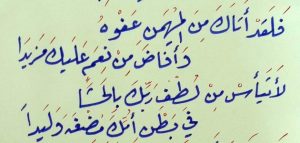 فَلَقَدْ أَتَاكَ مِنَ الْمُهَيْمِنِ عَفْوُهُ
وَأَفَاضَ مِنْ نِعَمٍ عَلَيْكَ مَزِيدَا
لَا تَيْأَسْ مِنْ لُطْفِ رَبِّكَ بِالْحَشَا
فِي بَطْنِ أُمِّكَ مُضْغَةً وَلِيدَا